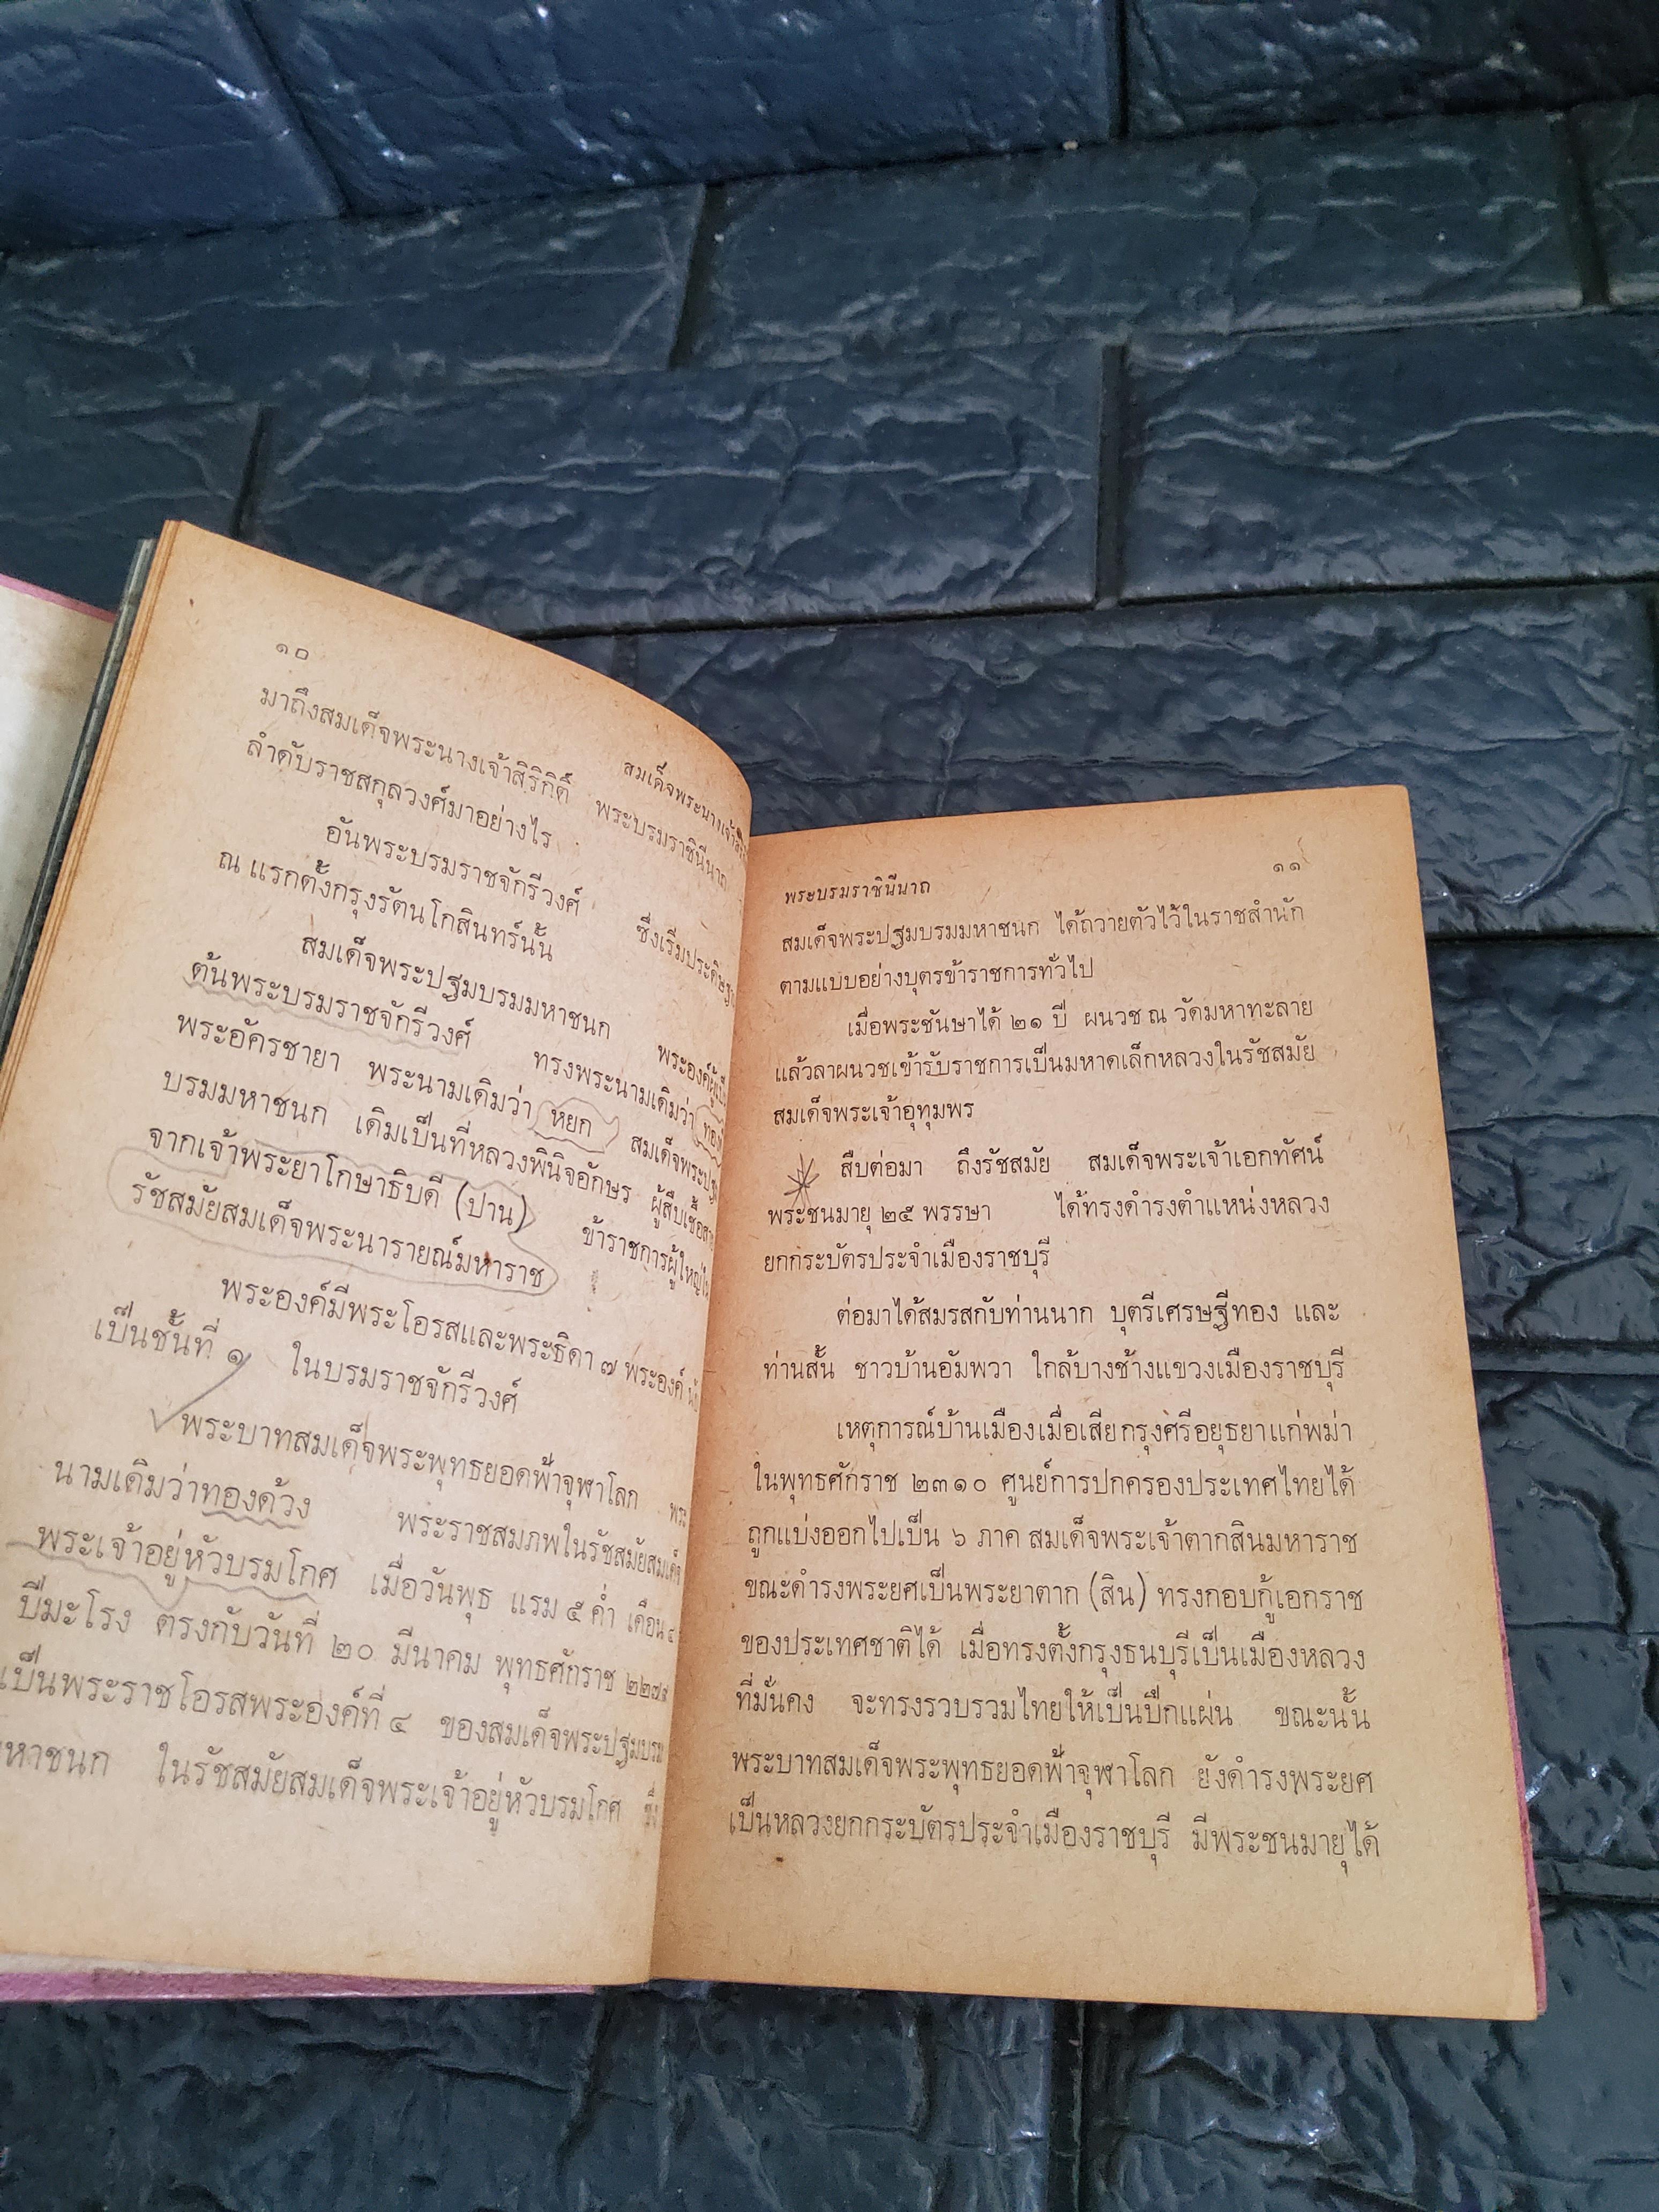 ๑๐
สมเด็จพระนางเจ้าสิริ
มาถึงสมเด็จพระนางเจ้าสิริกิติ์ พระบรมราชินีนาถ
ลำดับราชสกุลวงศ์มาอย่างไร
อันพระบรมราชจักรีวงศ์ ซึ่งเริ่มประดิษฐาน
ณ แรกตั้งกรุงรัตนโกสินทร์นั้น
สมเด็จพระปฐมบรมมหาชนก พระองค์ผู้เป็น
ต้นพระบรมราชจักรีวงศ์ ทรงพระนามเดิมว่า ทองดี
พระอัครชายา พระนามเดิมว่า หยก สมเด็จพระปฐม
บรมมหาชนก เดิมเป็นที่หลวงพินิจอักษร ผู้สืบเชื้อสาย
จากเจ้าพระยาโกษาธิบดี (ปาน) ข้าราชการผู้ใหญ่ใน
รัชสมัยสมเด็จพระนารายณ์มหาราช
พระองค์มีพระโอรสและพระธิดา ๗ พระองค์ นับ
เป็นชั้นที่ ๑ ในบรมราชจักรีวงศ์
พระบาทสมเด็จพระพุทธยอดฟ้าจุฬาโลก พระ
นามเดิมว่าทองด้วง พระราชสมภพในรัชสมัยสมเด็จ
พระเจ้าอยู่หัวบรมโกศ เมื่อวันพุธ แรม ๕ ค่ำ เดือน ๔
ปีมะโรง ตรงกับวันที่ ๒๐ มีนาคม พุทธศักราช ๒๒๗๙
เป็นพระราชโอรสพระองค์ที่ ๔ ของสมเด็จพระปฐมบรม
มหาชนก ในรัชสมัยสมเด็จพระเจ้าอยู่หัวบรมโกศ ซึ่ง
พระบรมราชินีนาถ ๑๑
สมเด็จพระปฐมบรมมหาชนก ได้ถวายตัวไว้ในราชสำนัก
ตามแบบอย่างบุตรข้าราชการทั่วไป
เมื่อพระชันษาได้ ๒๑ ปี ผนวช ณ วัดมหาทะลาย
แล้วลาผนวชเข้ารับราชการเป็นมหาดเล็กหลวงในรัชสมัย
สมเด็จพระเจ้าอุทุมพร
สืบต่อมา ถึงรัชสมัย สมเด็จพระเจ้าเอกทัศน์
พระชนมายุ ๒๕ พรรษา ได้ทรงดำรงตำแหน่งหลวง
ยกกระบัตรประจำเมืองราชบุรี
ต่อมาได้สมรสกับท่านนาก บุตรีเศรษฐีทอง และ
ท่านสั้น ชาวบ้านอัมพวา ใกล้บางช้างแขวงเมืองราชบุรี
เหตุการณ์บ้านเมืองเมื่อเสียกรุงศรีอยุธยาแก่พม่า
ในพุทธศักราช ๒๓๑๐ ศูนย์การปกครองประเทศไทยได้
ถูกแบ่งออกไปเป็น ๖ ภาค สมเด็จพระเจ้าตากสินมหาราช
ขณะดำรงพระยศเป็นพระยาตาก (สิน) ทรงกอบกู้เอกราช
ของประเทศชาติได้ เมื่อทรงตั้งกรุงธนบุรีเป็นเมืองหลวง
ที่มั่นคง จะทรงรวบรวมไทยให้เป็นปึกแผ่น ขณะนั้น
พระบาทสมเด็จพระพุทธยอดฟ้าจุฬาโลก ยังดำรงพระยศ
เป็นหลวงยกกระบัตรประจำเมืองราชบุรี มีพระชนมายุได้